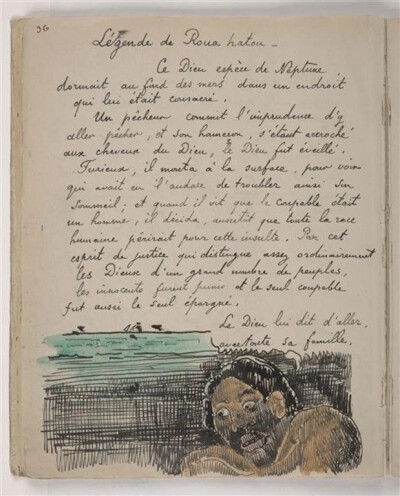 36
Légende de Roua hatou _
Ce Dieu espèce de Neptune
dormait au fond des mers dans un endroit
qui lui était consacré.
Un pêcheur commit l'imprudence d'y
aller pêcher, et son hameçon, s'étant accroché
aux cheveux du Dieu, le Dieu fut éveillé.
Furieux, il monta à la surface, pour voir
qui avait eu l'audace de troubler ainsi son
sommeil; et quand il vit que le coupable était
un homme, il décida, aussitôt que toute la race
humaine périrait pour cette insulte. Par cet
esprit de justice qui distingue assez ordinairement
les Dieux d'un grand nombre de peuples,
les innocents furent punis et le seul coupable
fut aussi le seul épargné.
Le Dieu lui dit d'aller,
avec toute sa famille,